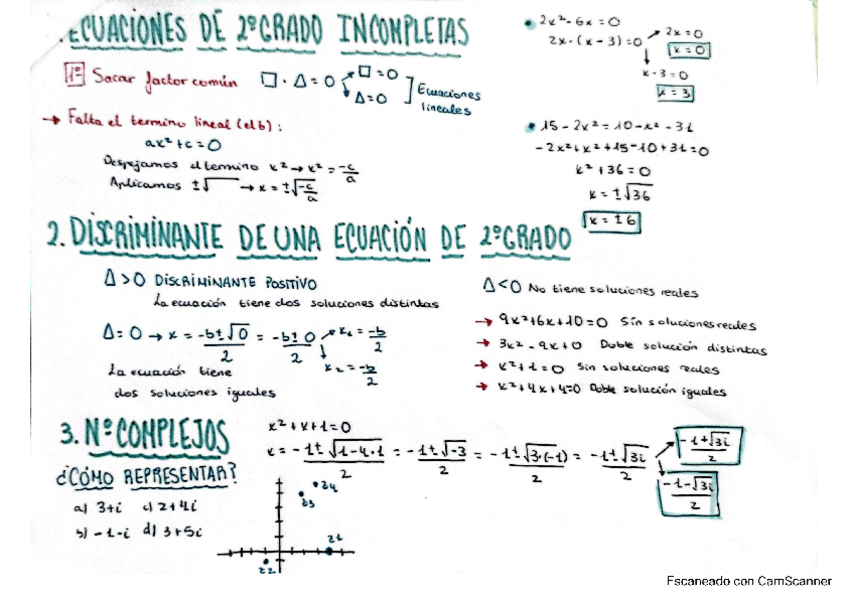 .ECUACIONES DE 2º GRADO INCOMPLETAS
1º Sacar factor común □ · Δ = 0 □ = 0 Δ = 0 Ecuaciones lineales
→ Falta el termino lineal (el b) :
ax² + c = 0
Despejamos el termino x² → x² = -c/a
Aplicamos ±√ → x = ±√-c/a
• 2x² - 6x = 0
2x · (x - 3) = 0 2x = 0
x = 0
x - 3 = 0
x = 3
• 15 - 2x² = 10 - x² - 31
-2x² + x² + 15 - 10 + 31 = 0
x² + 36 = 0
x = ±√36
x = ±6
2. DISCRIMINANTE DE UNA ECUACIÓN DE 2º GRADO
Δ > 0 DISCRIMINANTE POSITIVO
La ecuación tiene dos soluciones distintas
Δ = 0 → x = -b±√0/2 = -b±0/2 x₁ = -b/2
x₂ = -b/2
La ecuación tiene
dos soluciones iguales
Δ < 0 No tiene soluciones reales
→ 9x² + 6x + 10 = 0 Sin soluciones reales
→ 3x² - 9x + 0 Doble solución distintas
→ x² + 1 = 0 Sin soluciones reales
→ x² + 4x + 4 = 0 Doble solución iguales
3. Nº COMPLEJOS
x² + x + 1 = 0
x = -1±√1-4·1/2 = -1±√-3/2 = -1±√3·(-1)/2 = -1±√3i/2
-1+√3i/2
-1-√3i/2
¿CÓMO REPRESENTAR?
a) 3+i c) 2+4i
b) -1-i d) 3+5i
z4
z3
z1
z2
Escaneado con CamScanner